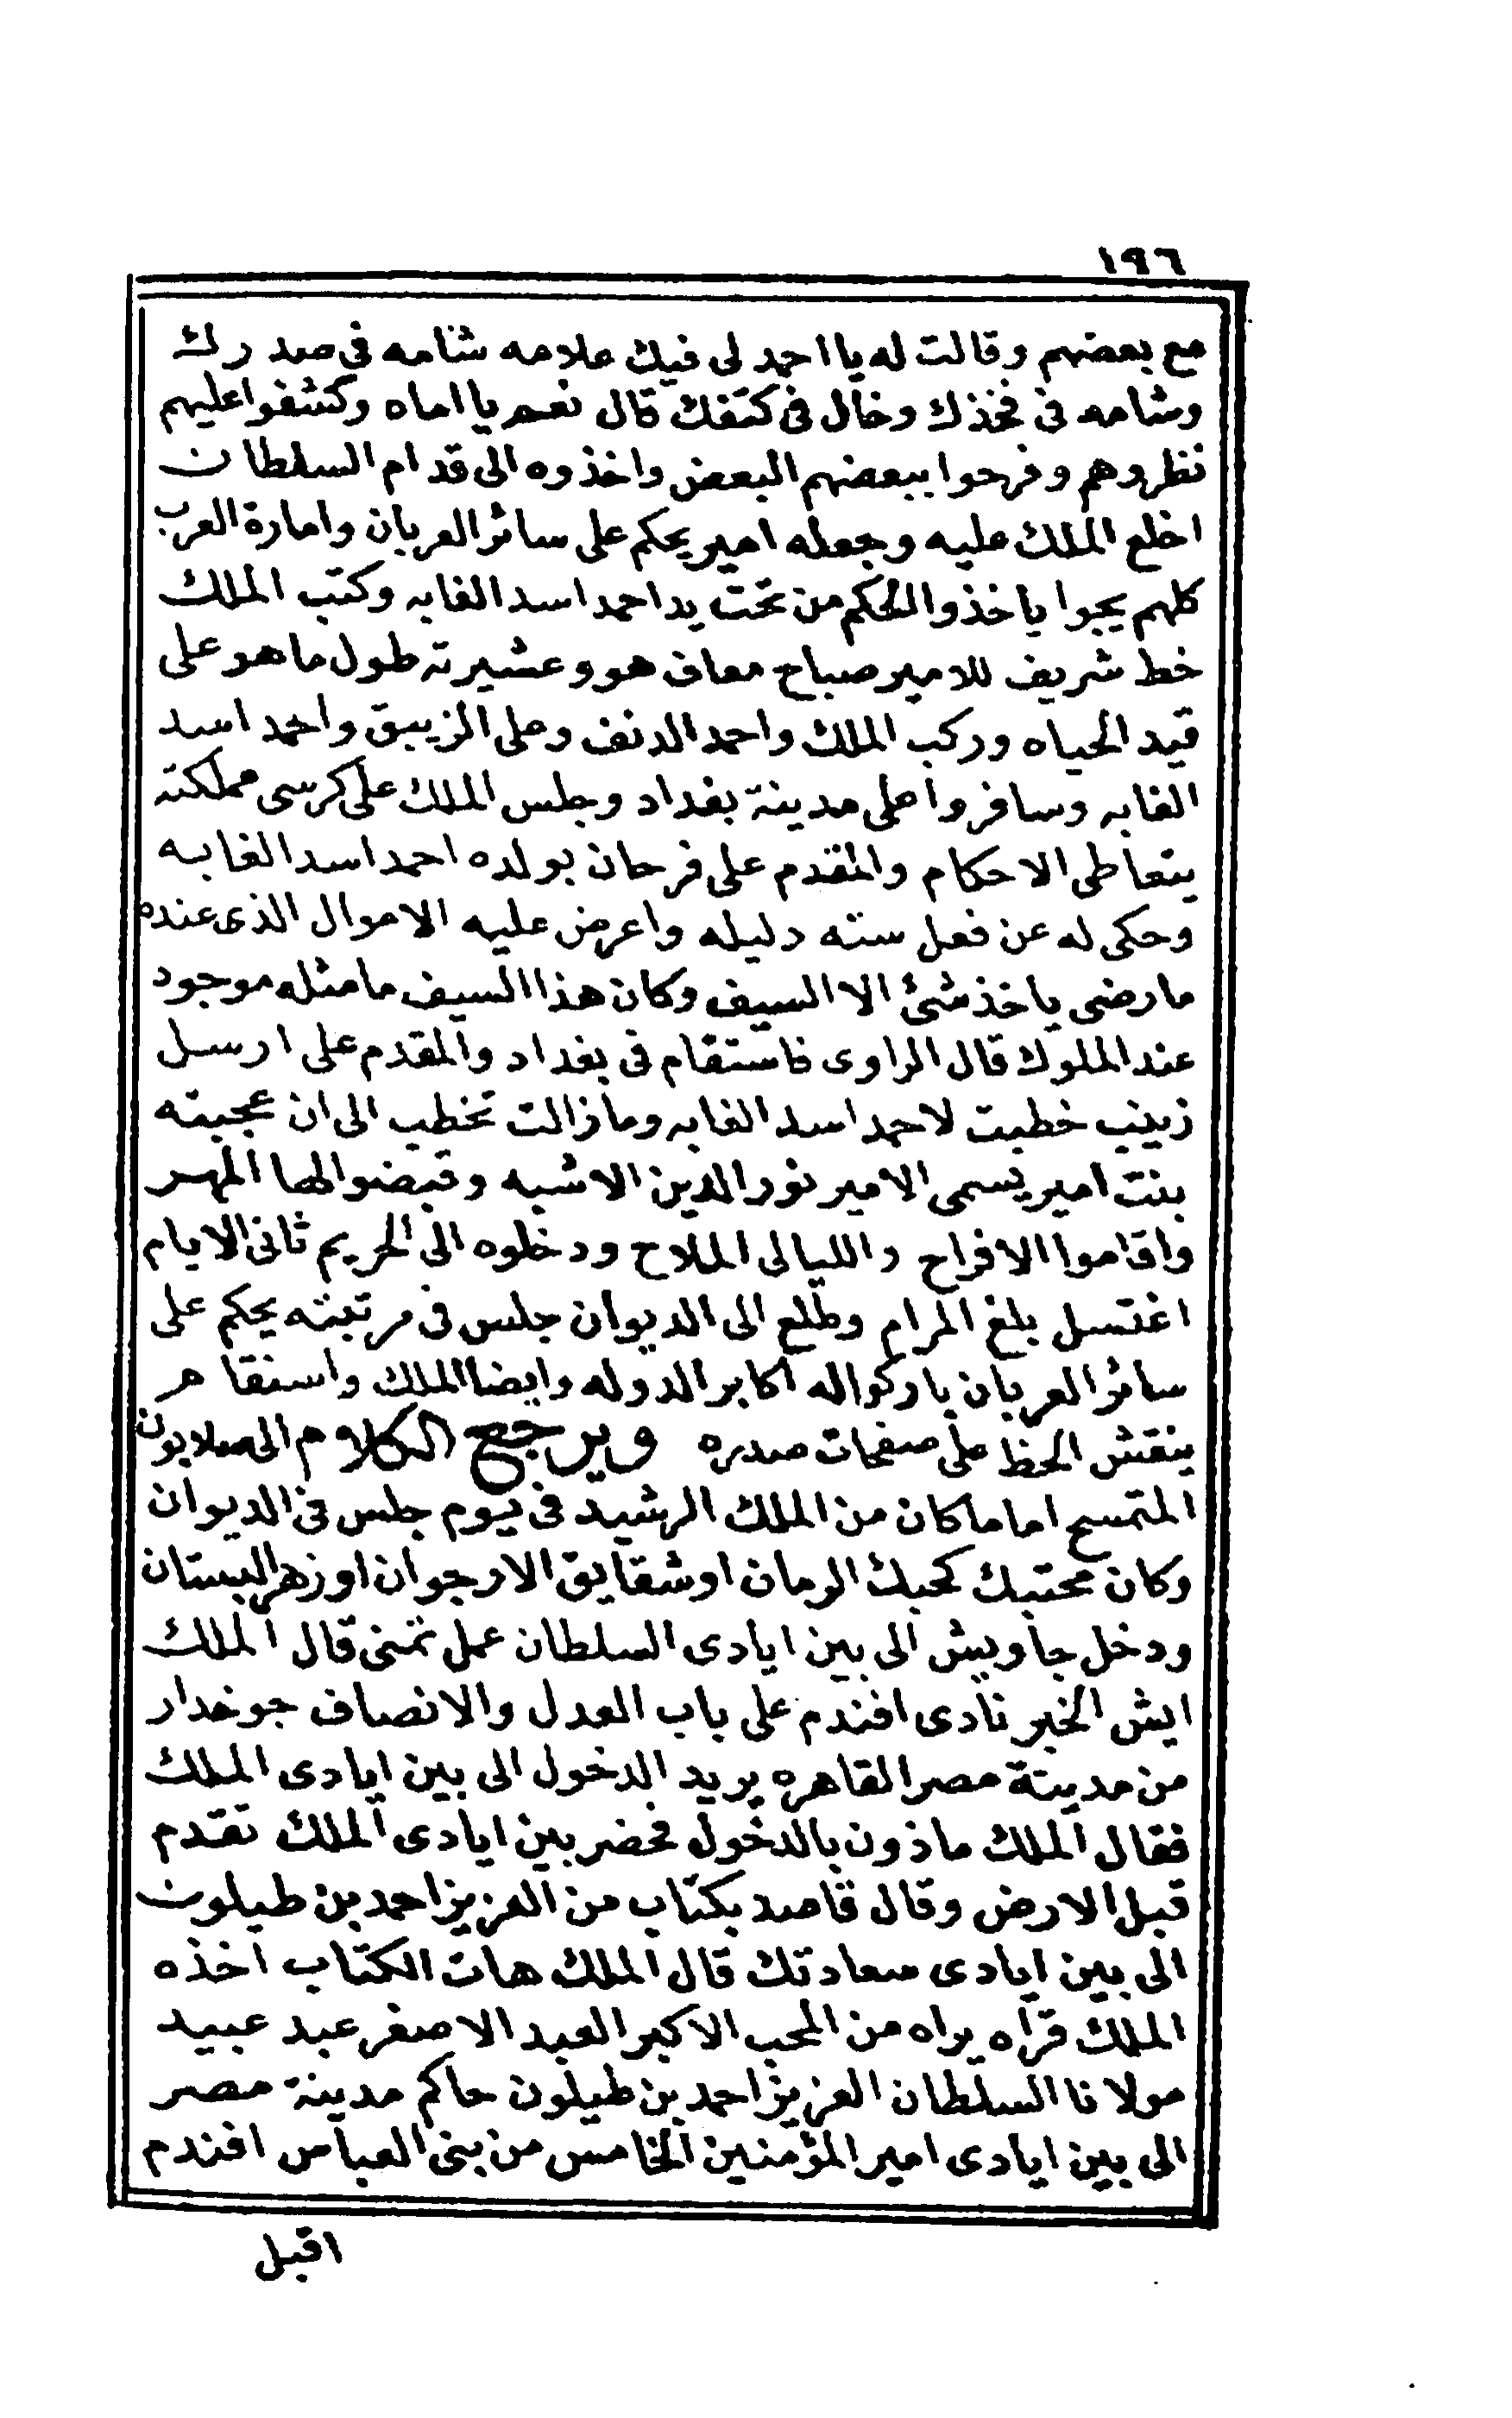 ١٩٦
مع بعضهم وقالت له يا احمد لى فيك علامه شامه فى صدرك
وشامه فى فخذك وخال فى كتفك قال نعم يا اماه وكشفوا عليهم
نظروهم وفرحوا ببعضهم البعض واخذوه الى قدام السلطان
اخلع الملك عليه وجعله امير يحكم على سائر العربان وامارة العرب
كلهم يجوا ياخذوا الحكم من تحت يد احمد اسد الغابه وكتب الملك
خط شريف للامير صباح معاف هو وعشيرته طول ما هو على
قيد الحياه وركب الملك واحمد الدنف وعلى الزيبق واحمد اسد
الغابه وسافروا على مدينة بغداد وجلس الملك على كرسى مملكته
يتعاطى الاحكام والمقدم على فرحان بولده احمد اسد الغابه
وحكى له عن فعل سته دليله واعرض عليه الاموال الذى عنده
ما رضى ياخذ شئ الا السيف وكان هذا السيف ما مثله موجود
عند الملوك قال الراوى فاستقام فى بغداد والمقدم على ارسل
زينب خطبت لاحمد اسد الغابه وما زالت تخطب الى ان عجبته
بنت امير يسمى الامير نور الدين الاشبه وقبضوا لها المهر
واقاموا الافراح والليالى الملاح ودخلوه الى الحريم ثانى الايام
اغتسل بلغ المرام وطلع الى الديوان جلس فى مرتبته يحكم على
سائر العربان باركوا له اكابر الدوله وايضا الملك واستقام
ينقش الحظ على صفحات صدره ويرجع الكلام الى صلابون
المتمسح اما ما كان من الملك الرشيد فى يوم جلس فى الديوان
وكان محتبك كحبك الرمان او شقايق الارجوان او زهر البستان
ودخل جاويش الى بين ايادى السلطان عمل تمنى قال الملك
ايش الخبر نادى افندم على باب العدل والانصاف جوخدار
من مدينة مصر القاهره يريد الدخول الى بين ايادى الملك
فقال الملك ماذون بالدخول فحضر بين ايادى الملك تقدم
قبل الارض وقال قاصد بكتاب من العزيز احمد بن طيلون
الى بين ايادى سعادتك قال الملك هات الكتاب اخذه
الملك قراه يراه من المحب الاكبر العبد الاصغر عبد عبيد
مولانا السلطان العزيز احمد بن طيلون حاكم مدينة مصر
الى بين ايادى امير المؤمنين الخامس من بنى العباس افندم
اقبل